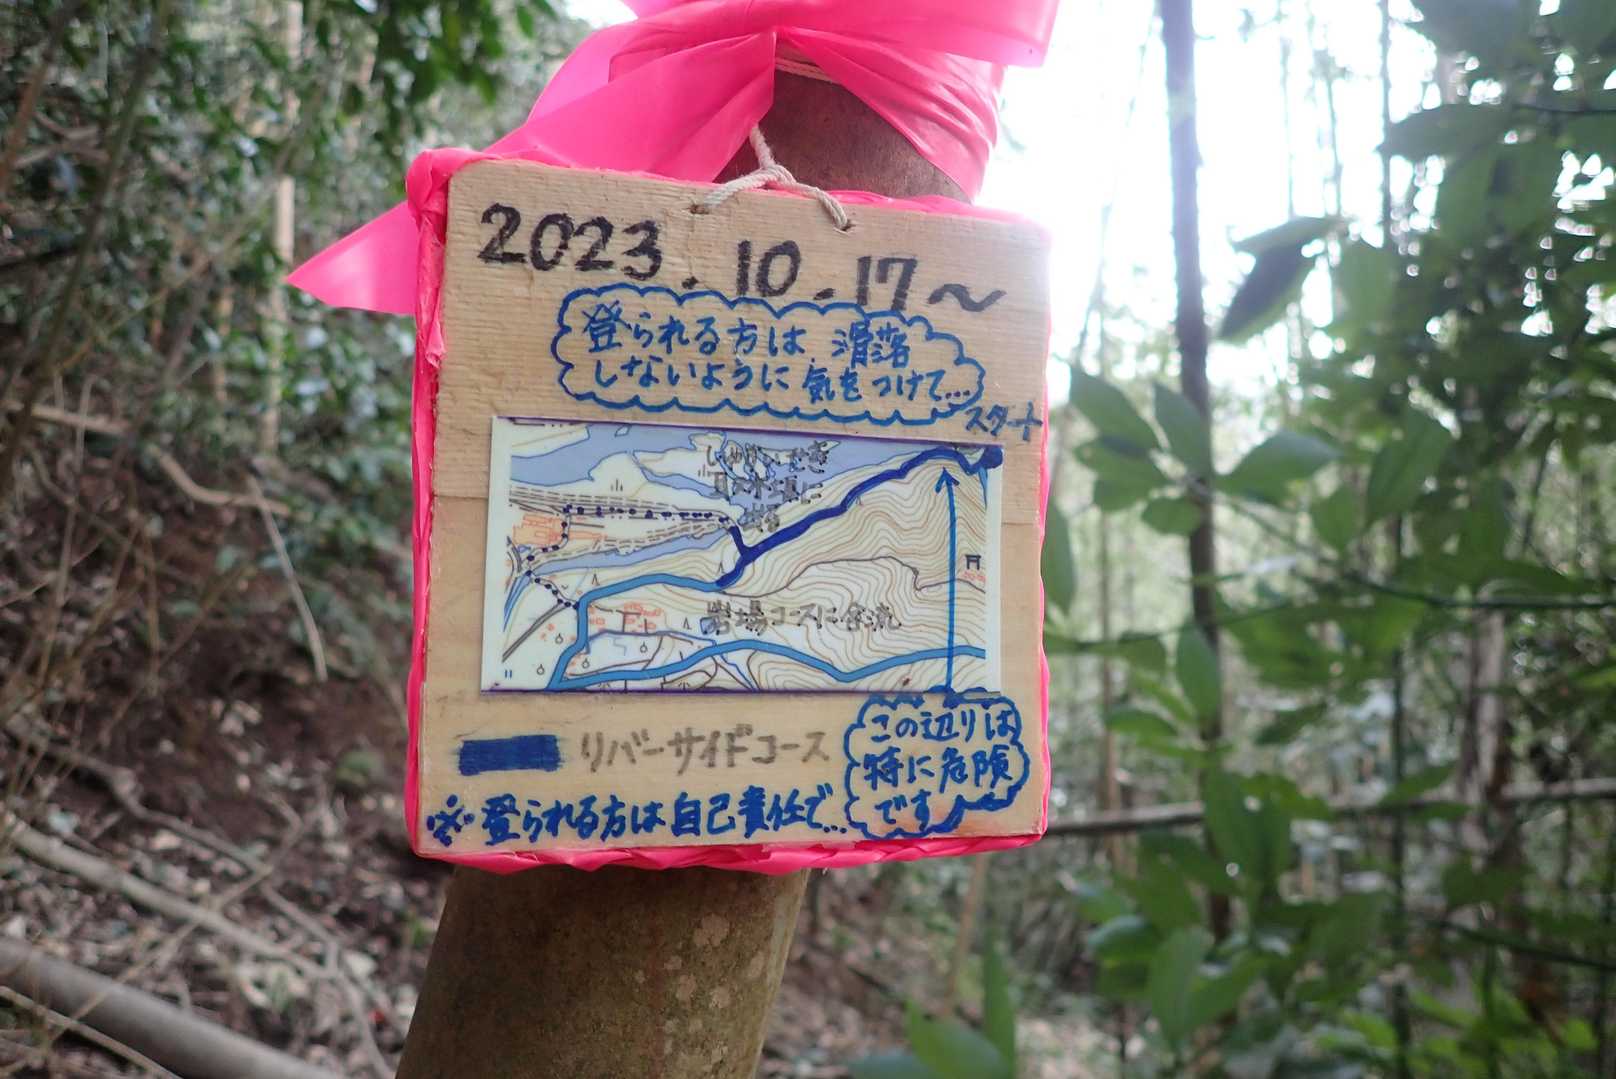 2023.10.17〜
登られる方は、滑落
しないように気をつけて…
スタート
岩場コースに合流
リバーサイドコース
この辺りは
特に危険
です
※登られる方は自己責任で…